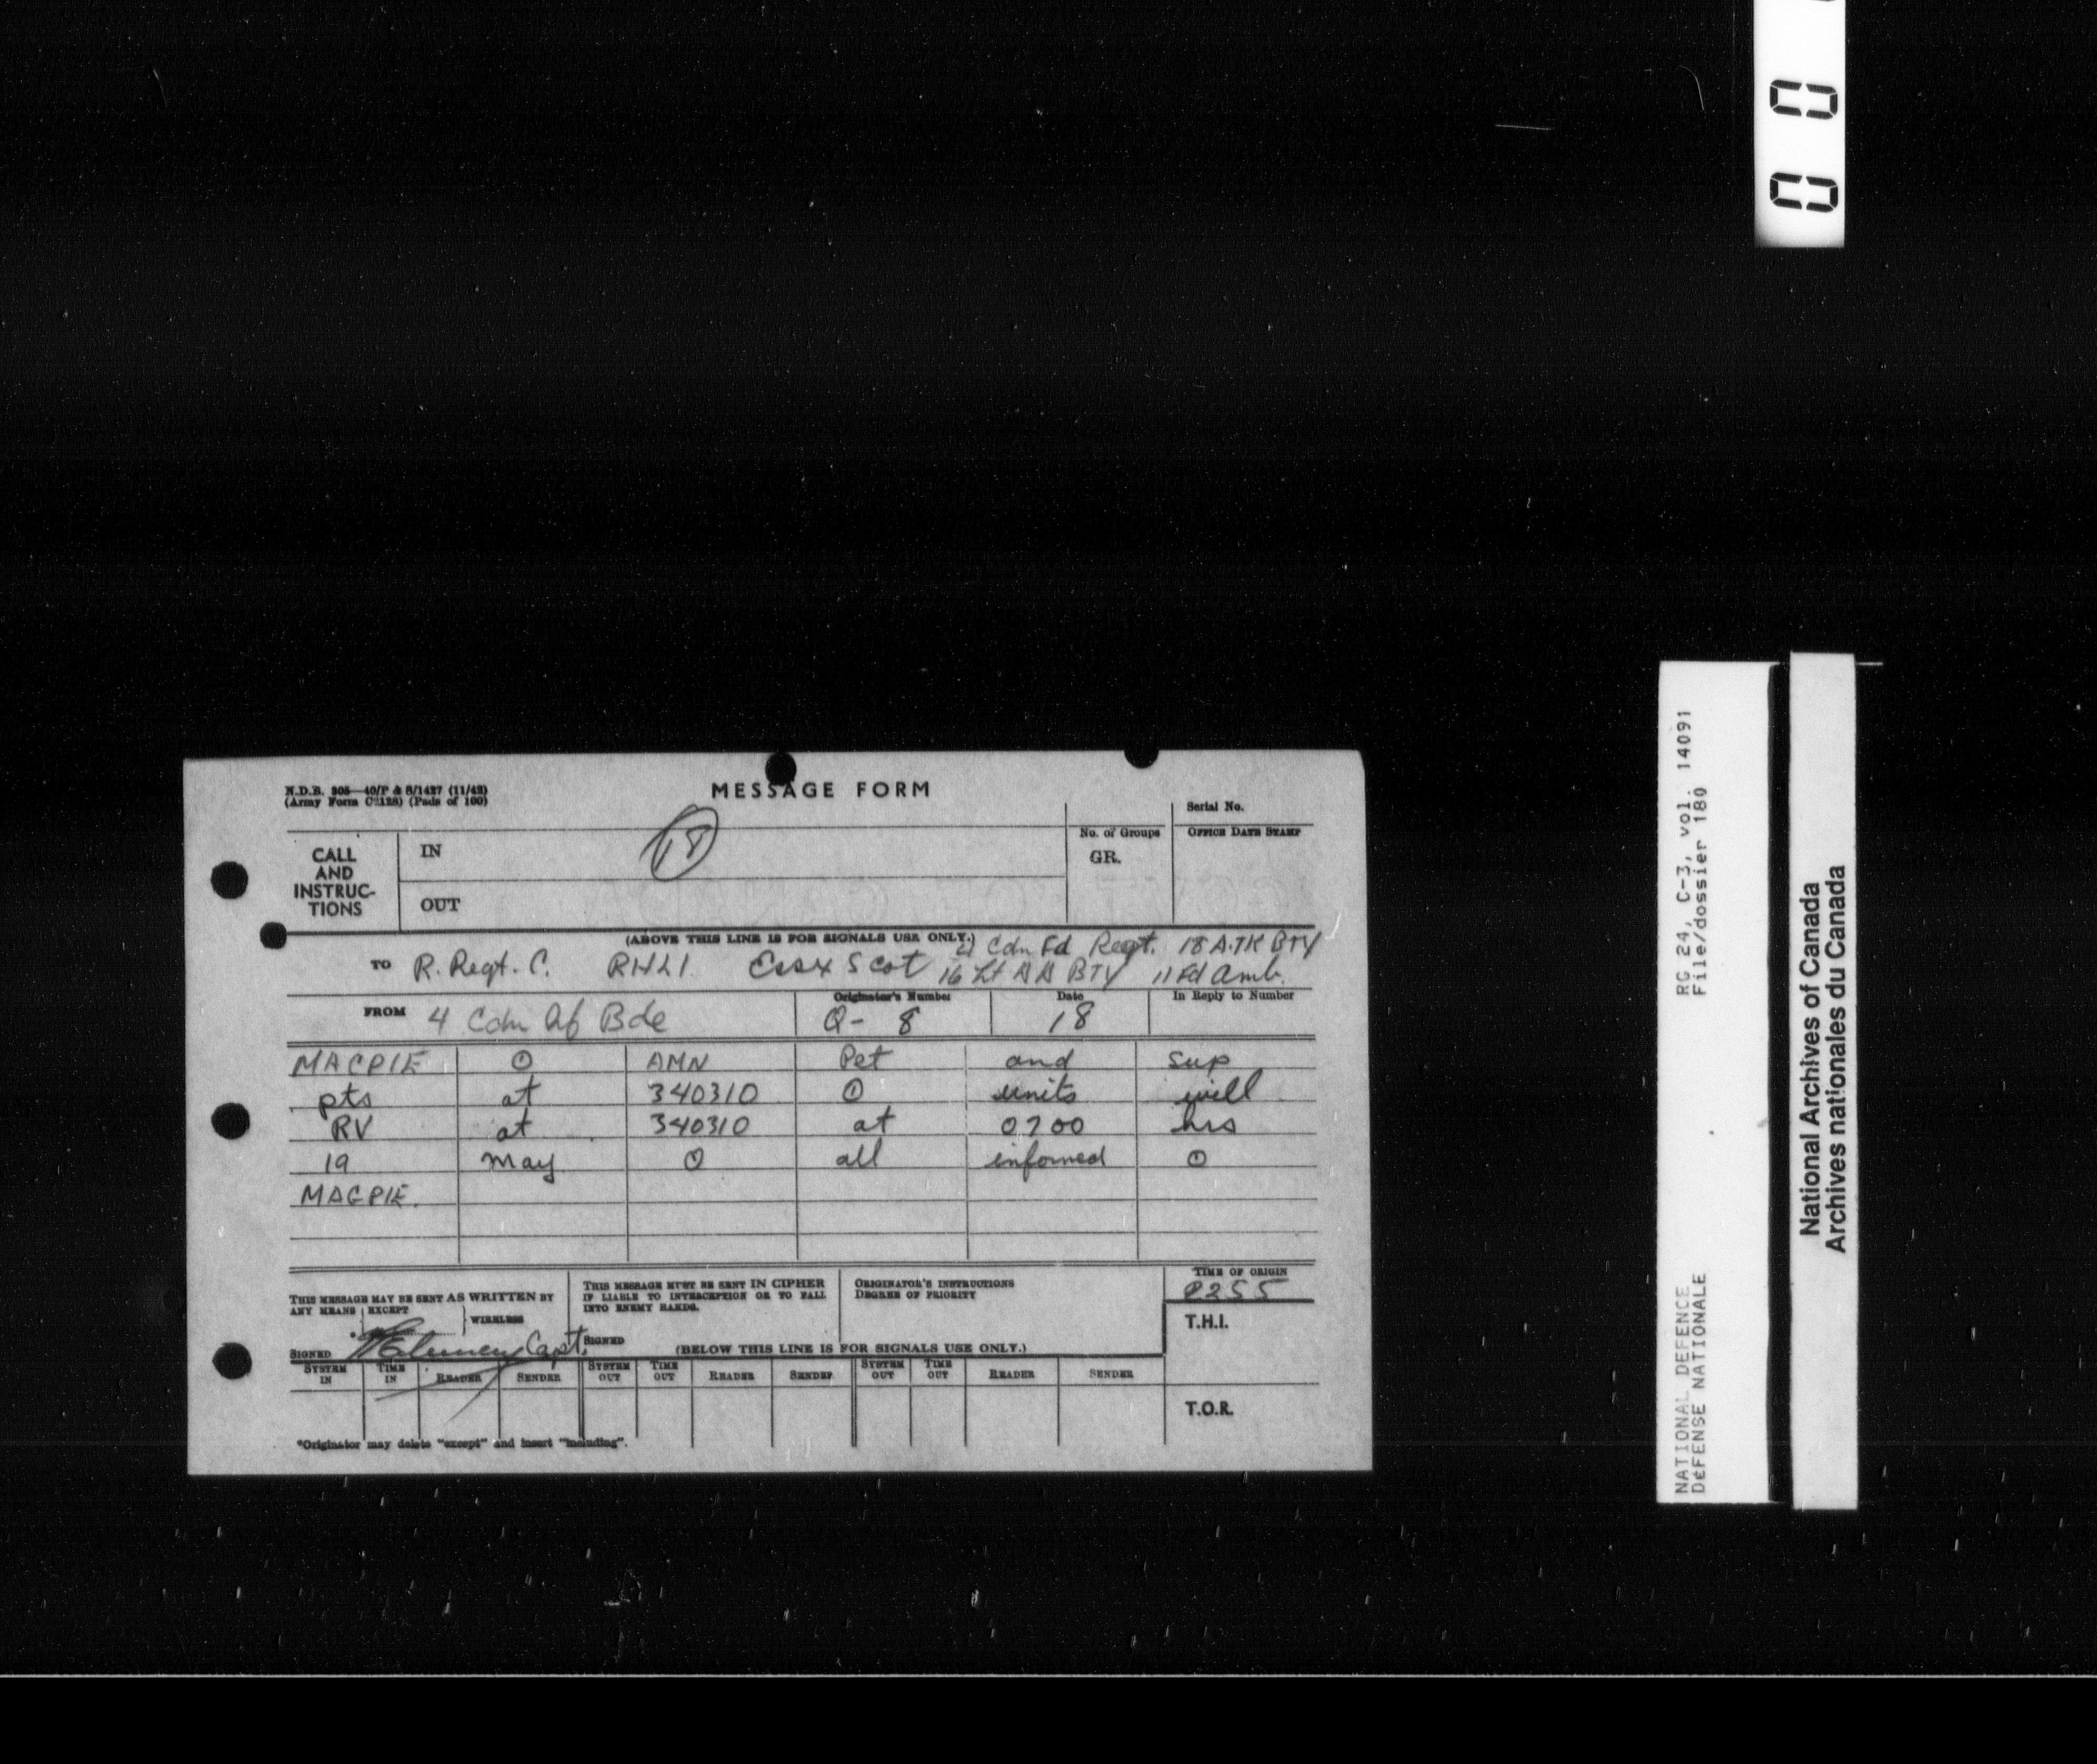 00
N.D.B. 305—40/P & S/1427 (11/42)
(Army Form C2128) (Pads of 100)
MESSAGE FORM
Serial No.
CALL AND INSTRUC-TIONS
IN
18
No. of Groups
GR.
OFFICE DATE STAMP
OUT
(ABOVE THIS LINE IS FOR SIGNALS USE ONLY.)
4 Cdn Fd Regt. 18 A.TK BTY
TO R. Regt. C. RHLI Essx Scot 16 Lt AA BTY 11 Fd Amb.
FROM 4 Cdn Inf Bde
Originator's Number
Q- 8
Date
18
In Reply to Number
MAGPIE ⊙ AMN Pet and sup
pts at 340310 ⊙ units will
RV at 340310 at 0700 hrs
19 May ⊙ all informed ⊙
MAGPIE.
THIS MESSAGE MAY BE SENT AS WRITTEN BY ANY MEANS EXCEPT WIRELESS
SIGNED Capt.
THIS MESSAGE MUST BE SENT IN CIPHER IF LIABLE TO INTERCEPTION OR TO FALL INTO ENEMY HANDS.
SIGNED
ORIGINATOR'S INSTRUCTIONS
DEGREE OF PRIORITY
TIME OF ORIGIN
2255
T.H.I.
(BELOW THIS LINE IS FOR SIGNALS USE ONLY.)
SYSTEM IN TIME IN READER SENDER SYSTEM OUT TIME OUT READER SENDER SYSTEM OUT TIME OUT READER SENDER
T.O.R.
*Originator may delete "except" and insert "including".
RG 24, C-3, vol. 14091
File/dossier 180
NATIONAL DEFENCE
DÉFENSE NATIONALE
National Archives of Canada
Archives nationales du Canada